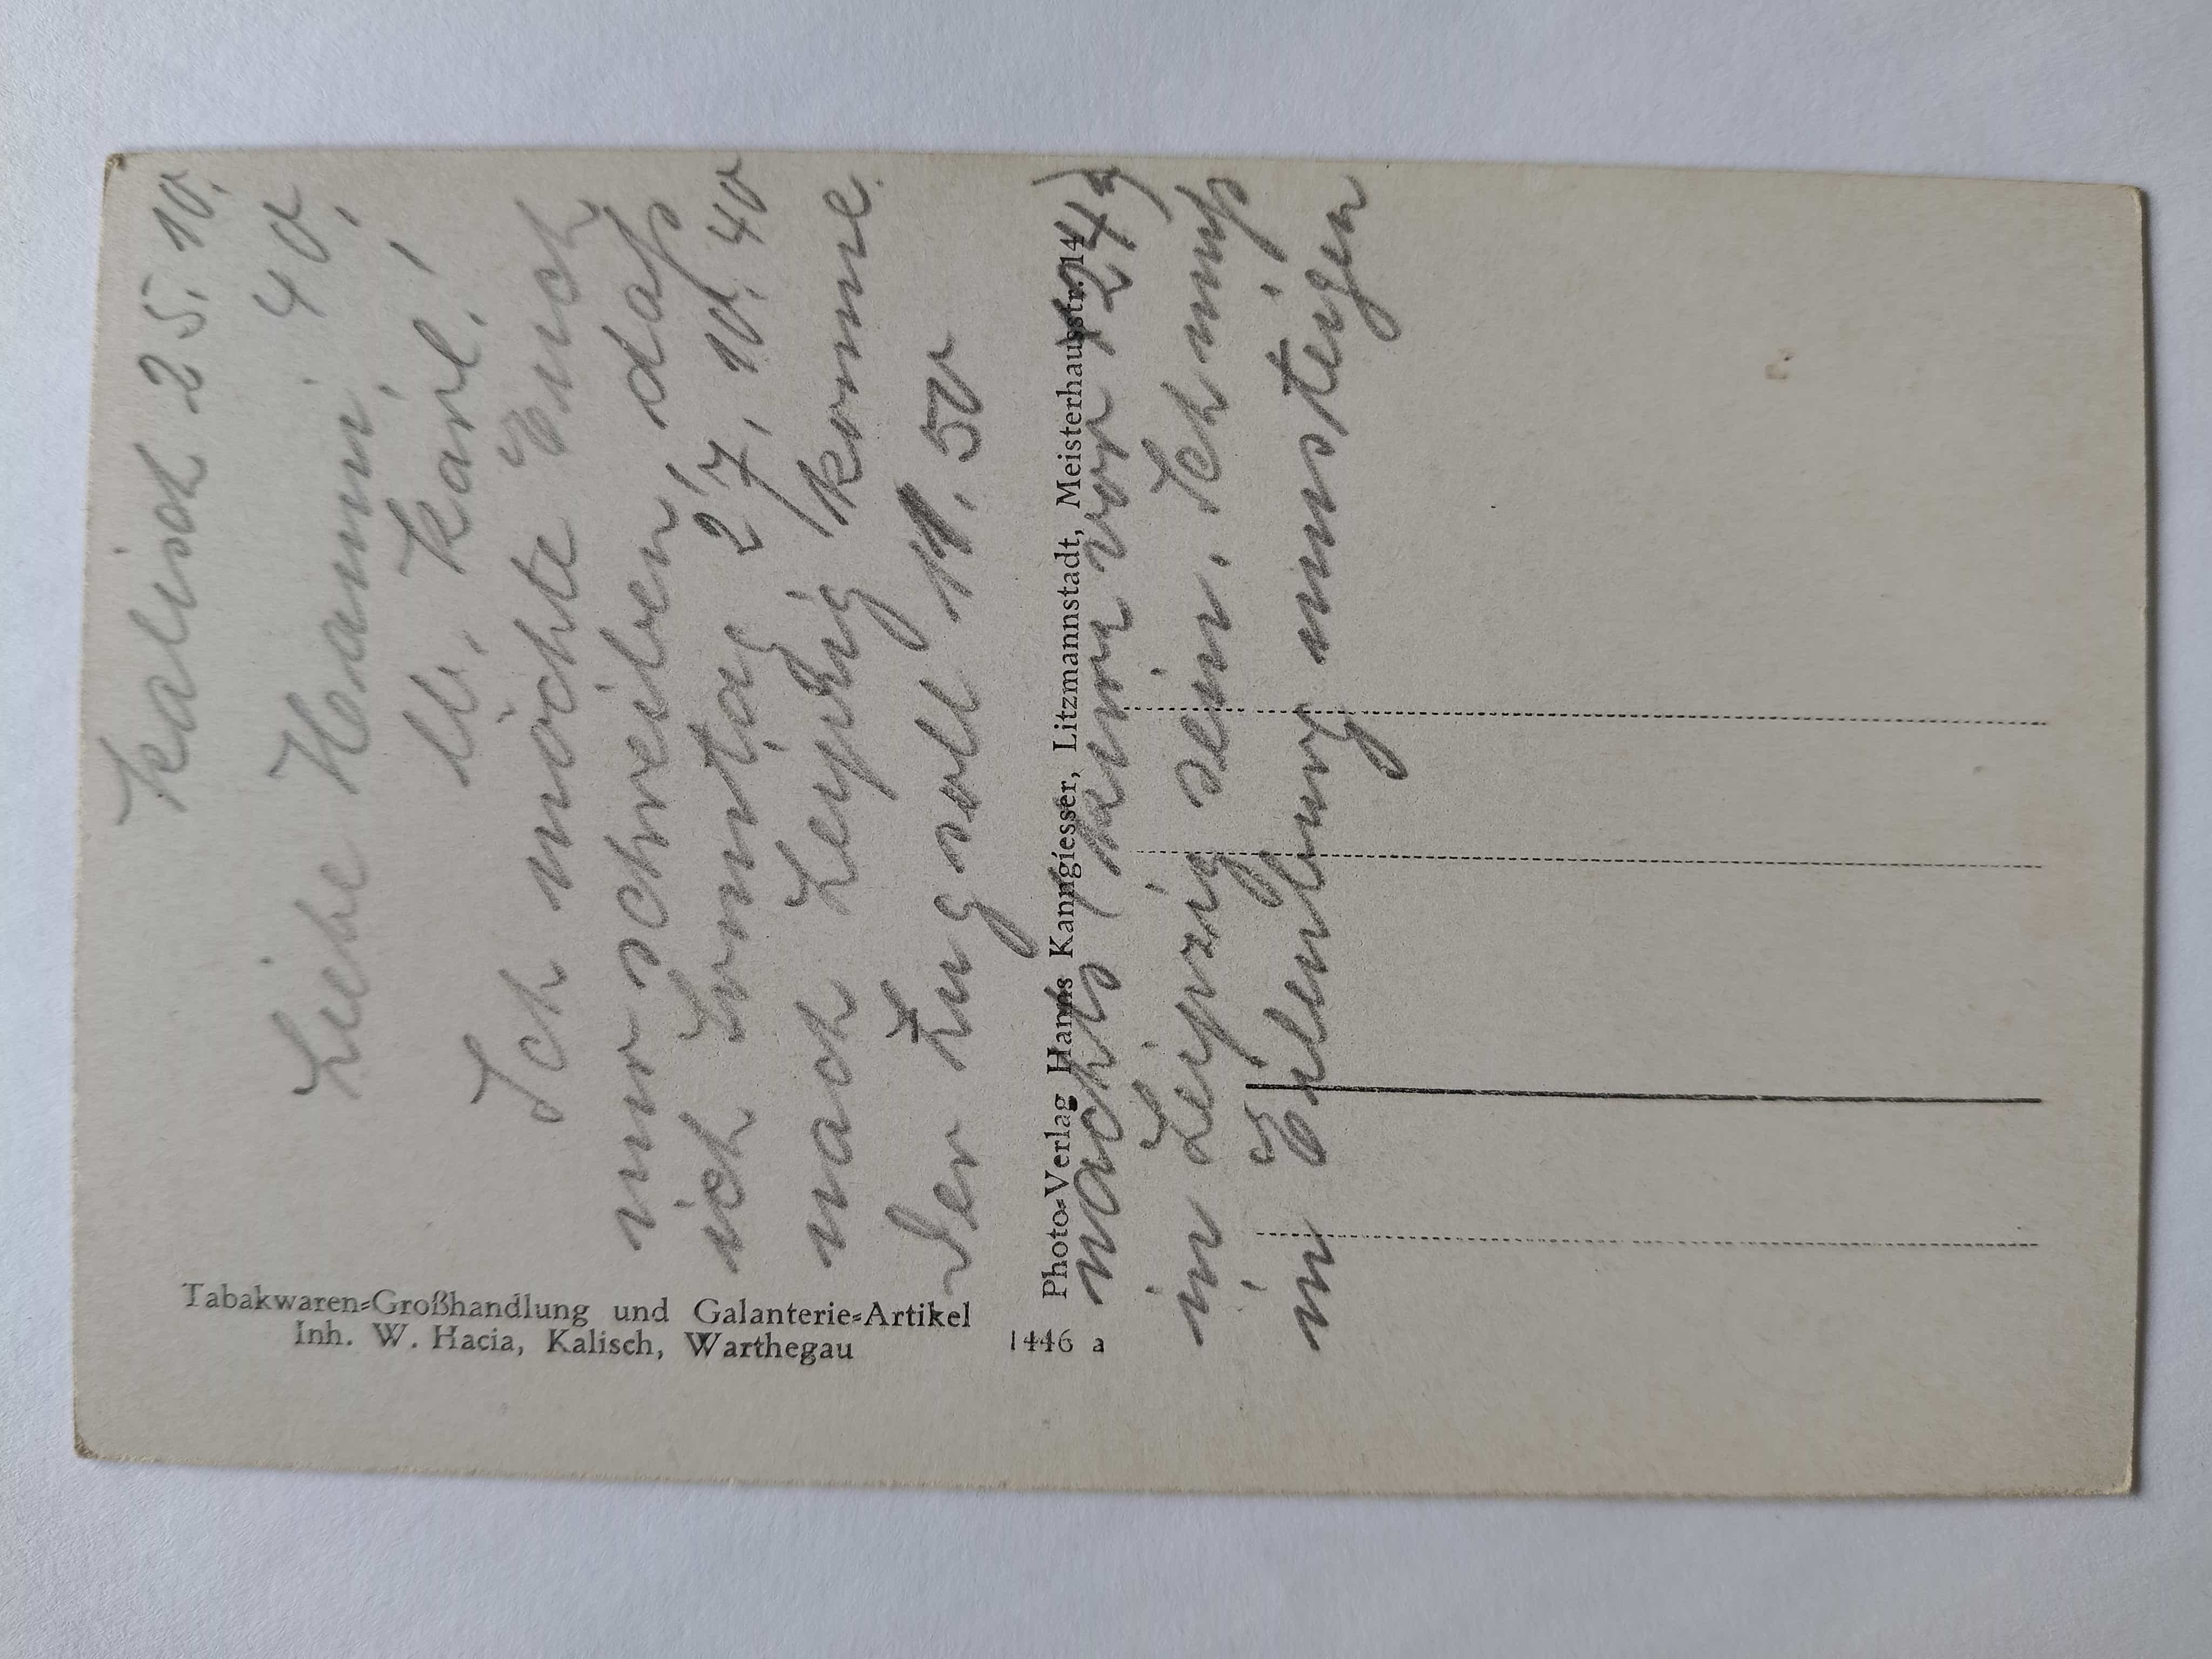 Kalisch 25. 10.
40.
Liebe Hanni,
lb. Karl!
Ich möchte Euch
nur schreiben, daß
ich Sonntag 27. 10. 40
nach Leipzig komme.
Der Zug soll 11.50
nachts (kann vor 24)
in Leipzig sein. Ich muß
in Eilenburg umsteigen
Photo-Verlag Hanns Kanngiesser, Litzmannstadt, Meisterhausstr. 14
Tabakwaren-Großhandlung und Galanterie-Artikel
Inh. W. Hacia, Kalisch, Warthegau
1446 a